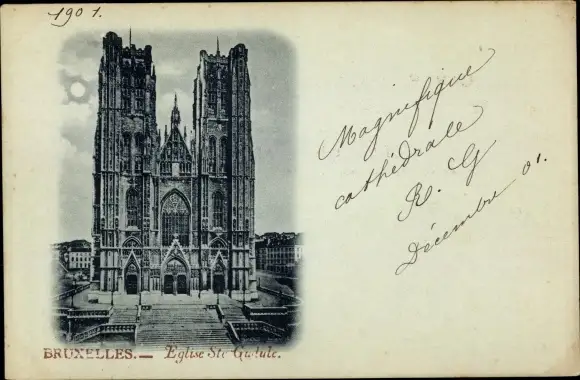 1901.
Magnifique
cathédrale
R. G
Décembre 01.
BRUXELLES.— Eglise Ste Gudule.